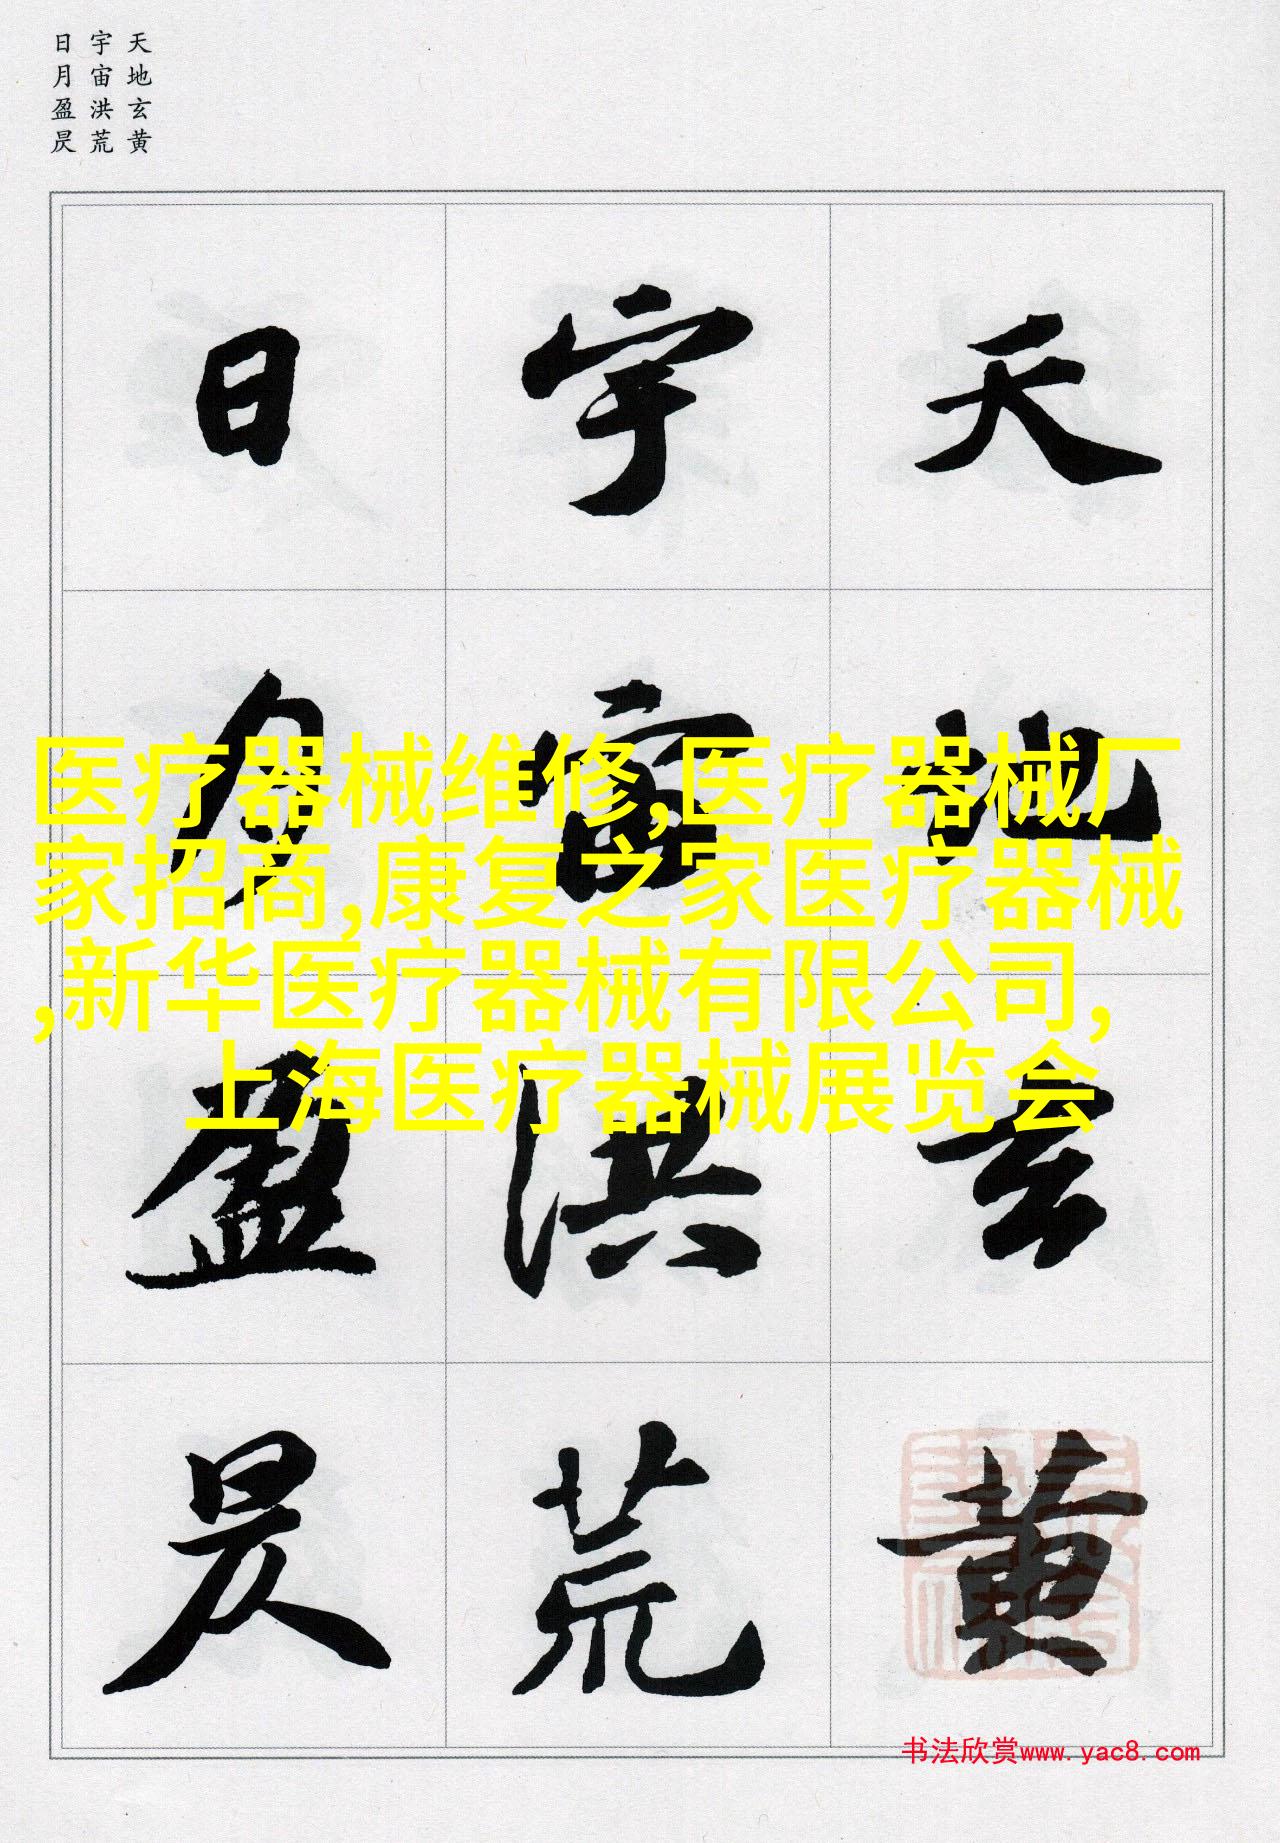 天地玄黄
宇宙洪荒
日月盈昃
天地玄黄
宇宙洪荒
日月盈昃
医疗器械维修,医疗器械厂
家招商,康复之家医疗器械
,新华医疗器械有限公司,
上海医疗器械展览会
书法欣赏www.yac8.com